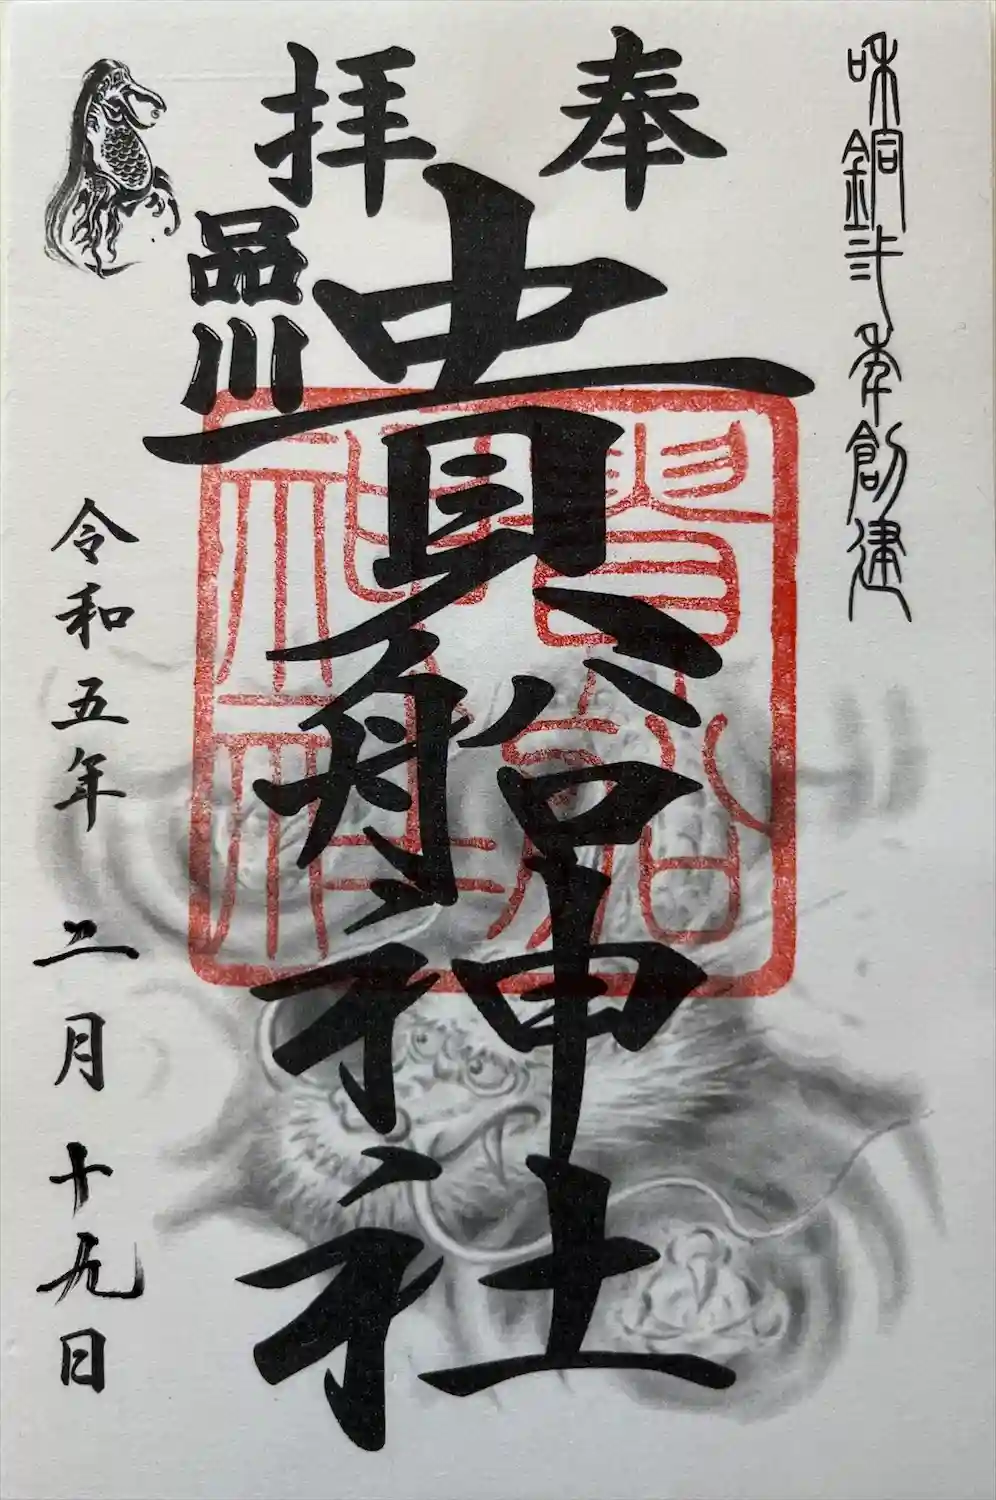 和銅弐年創建
奉拝
品川
貴船神社
貴船神社
令和五年二月十九日